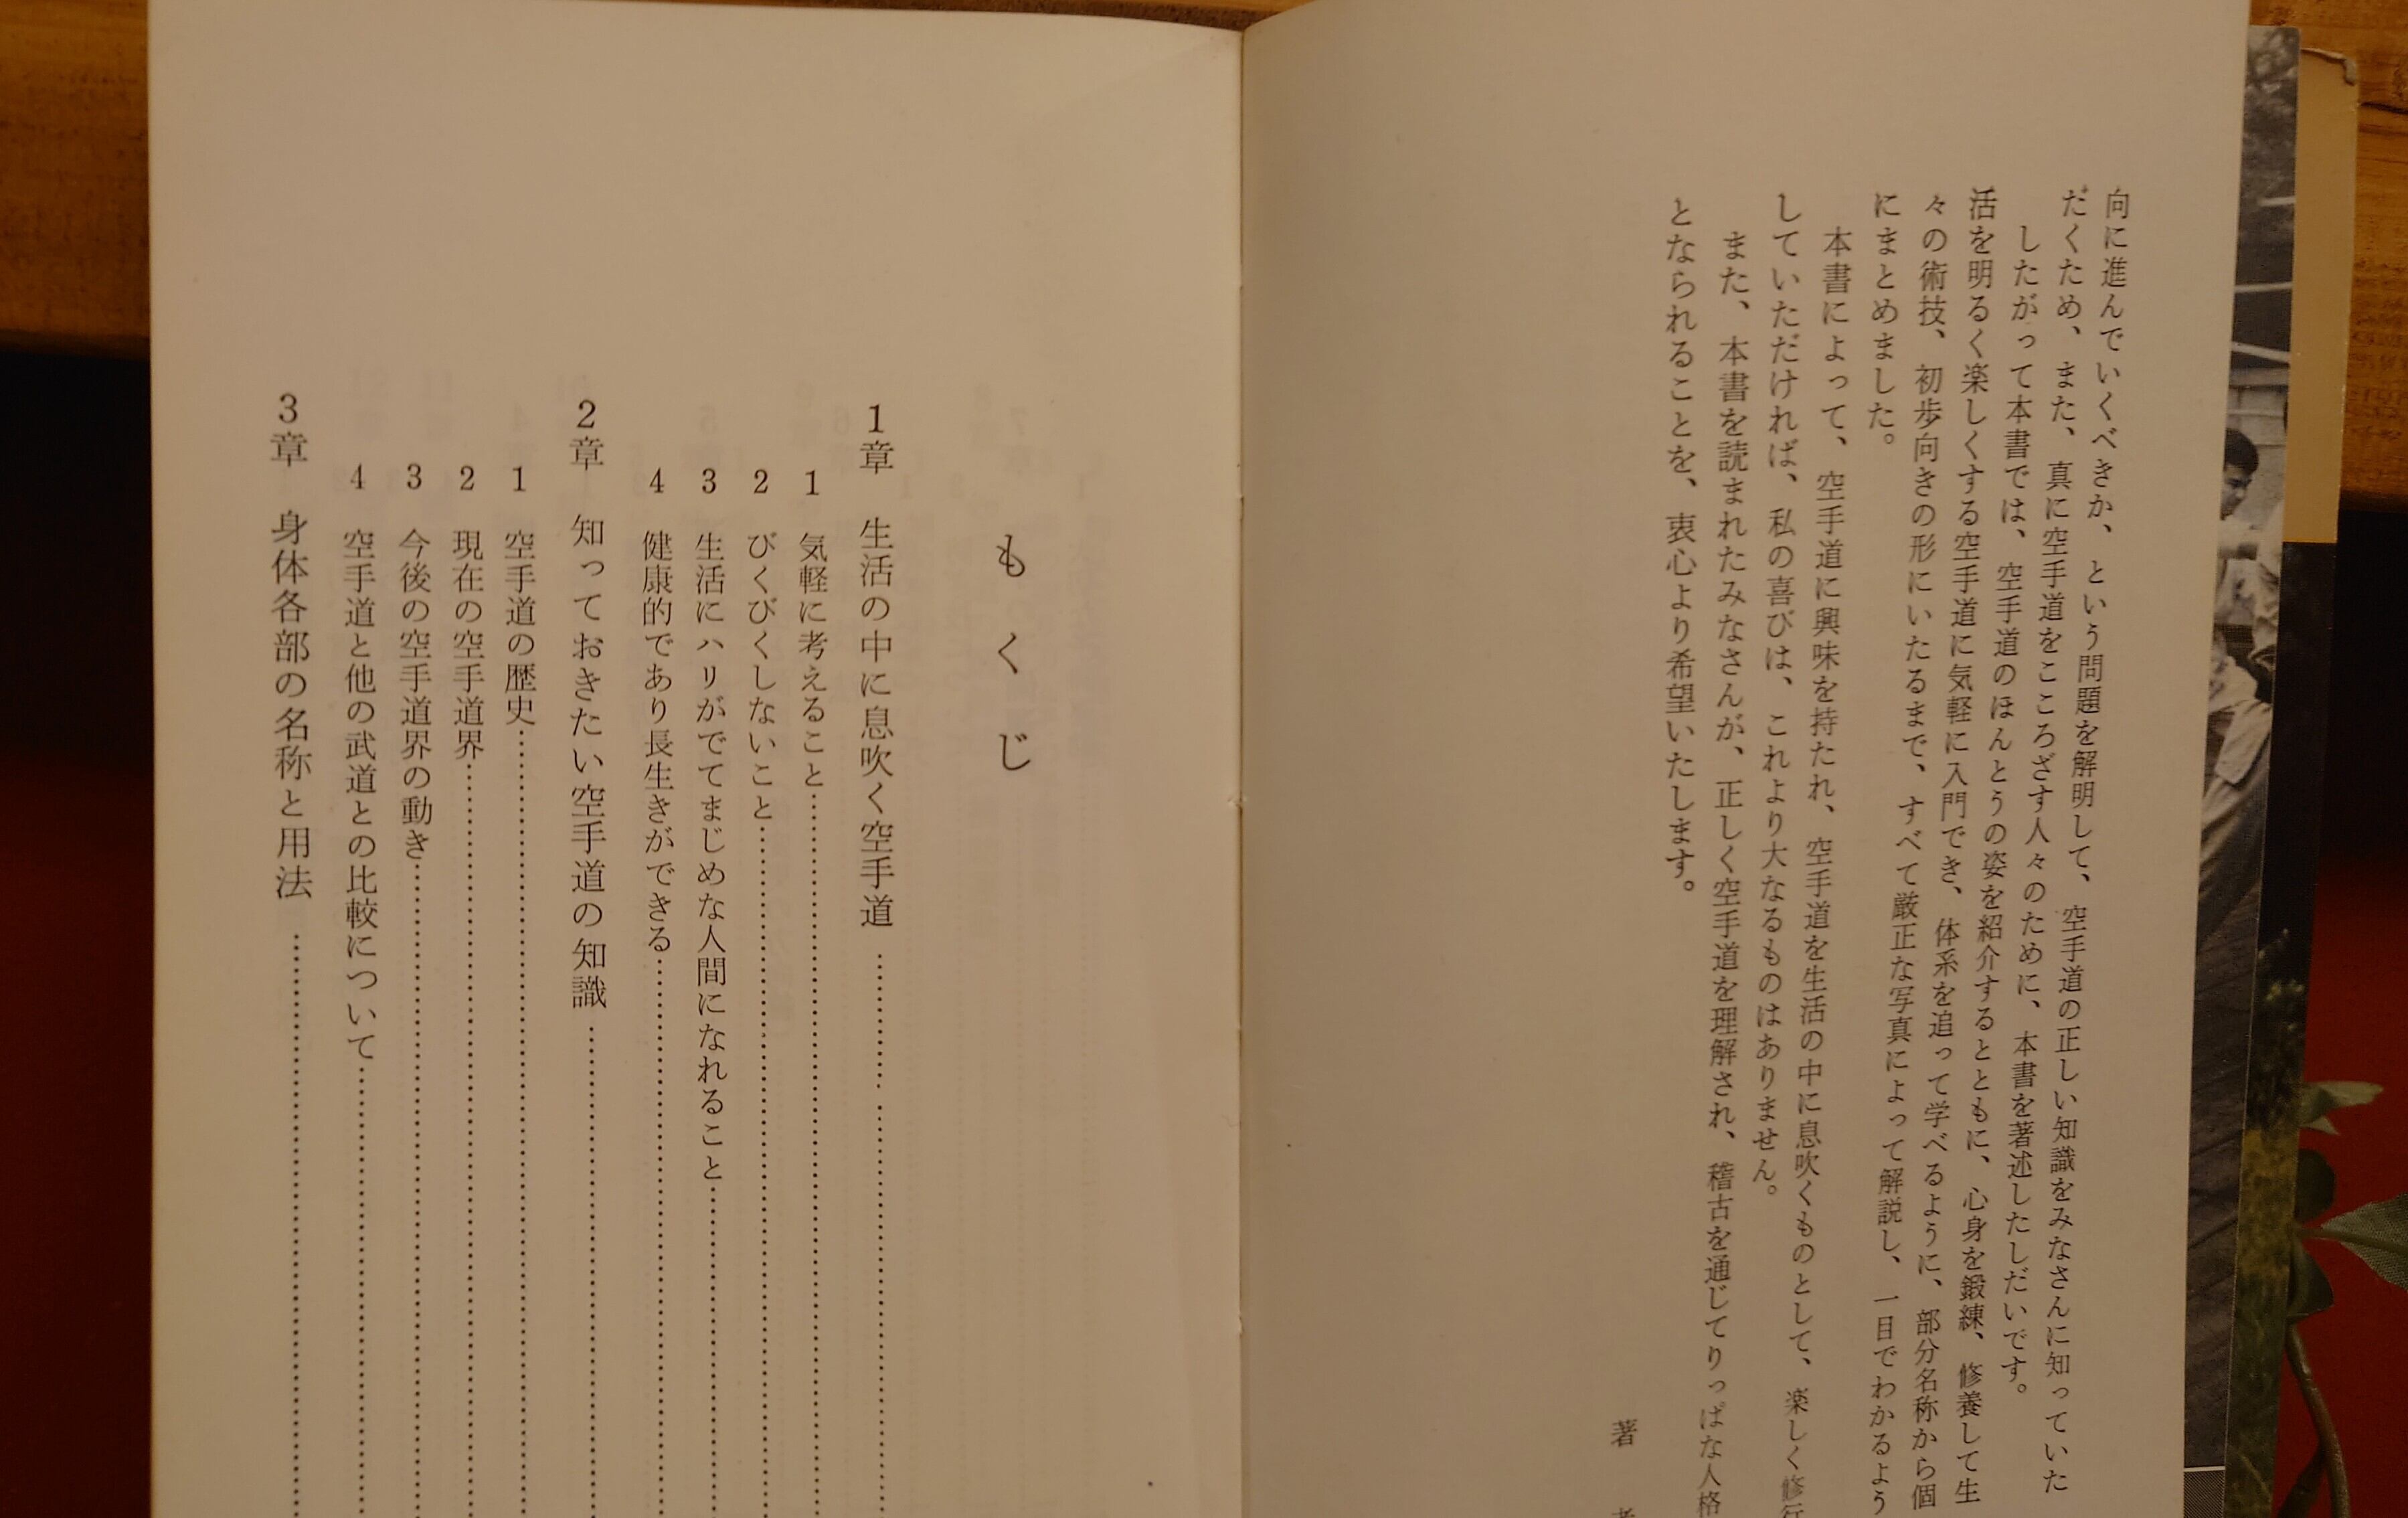 向に進んでいくべきか、という問題を解明して、空手道の正しい知識をみなさんに知っていた
だくため、また、真に空手道をこころざす人々のために、本書を著述したしだいです。
したがって本書では、空手道のほんとうの姿を紹介するとともに、心身を鍛練、修養して生
活を明るく楽しくする空手道に気軽に入門でき、体系を追って学べるように、部分名称から個
々の術技、初歩向きの形にいたるまで、すべて厳正な写真によって解説し、一目でわかるよう
にまとめました。
本書によって、空手道に興味を持たれ、空手道を生活の中に息吹くものとして、楽しく修行
していただければ、私の喜びは、これより大なるものはありません。
また、本書を読まれたみなさんが、正しく空手道を理解され、稽古を通じてりっぱな人格
となられることを、衷心より希望いたします。
著
もくじ
1章 生活の中に息吹く空手道
1 気軽に考えること
2 びくびくしないこと
3 生活にハリがでてまじめな人間になれること
4 健康的であり長生きができる
2章 知っておきたい空手道の知識
1 空手道の歴史
2 現在の空手道界
3 今後の空手道界の動き
4 空手道と他の武道との比較について
3章 身体各部の名称と用法